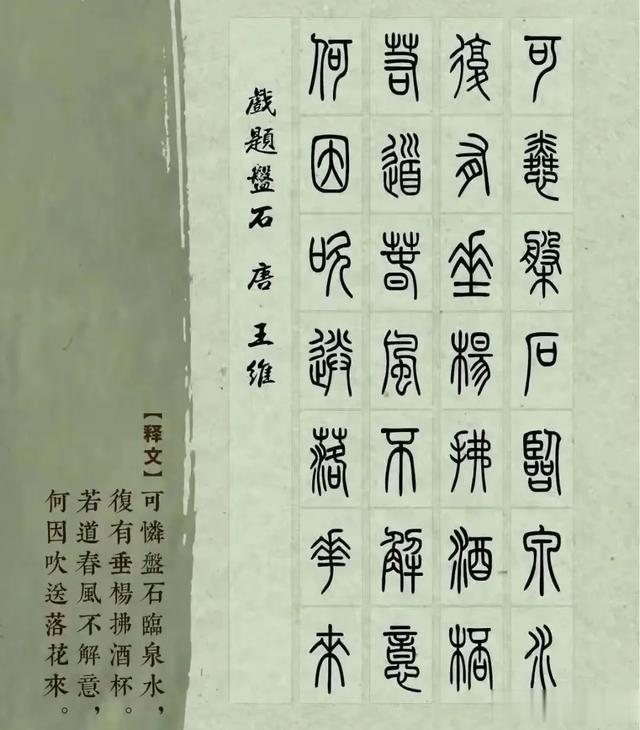 可憐盤石臨泉水
復有垂楊拂酒桮
若道春風不解意
何因吹送落花來
戲題盤石 唐 王維
【释文】可憐盤石臨泉水，
復有垂楊拂酒杯。
若道春風不解意，
何因吹送落花來。